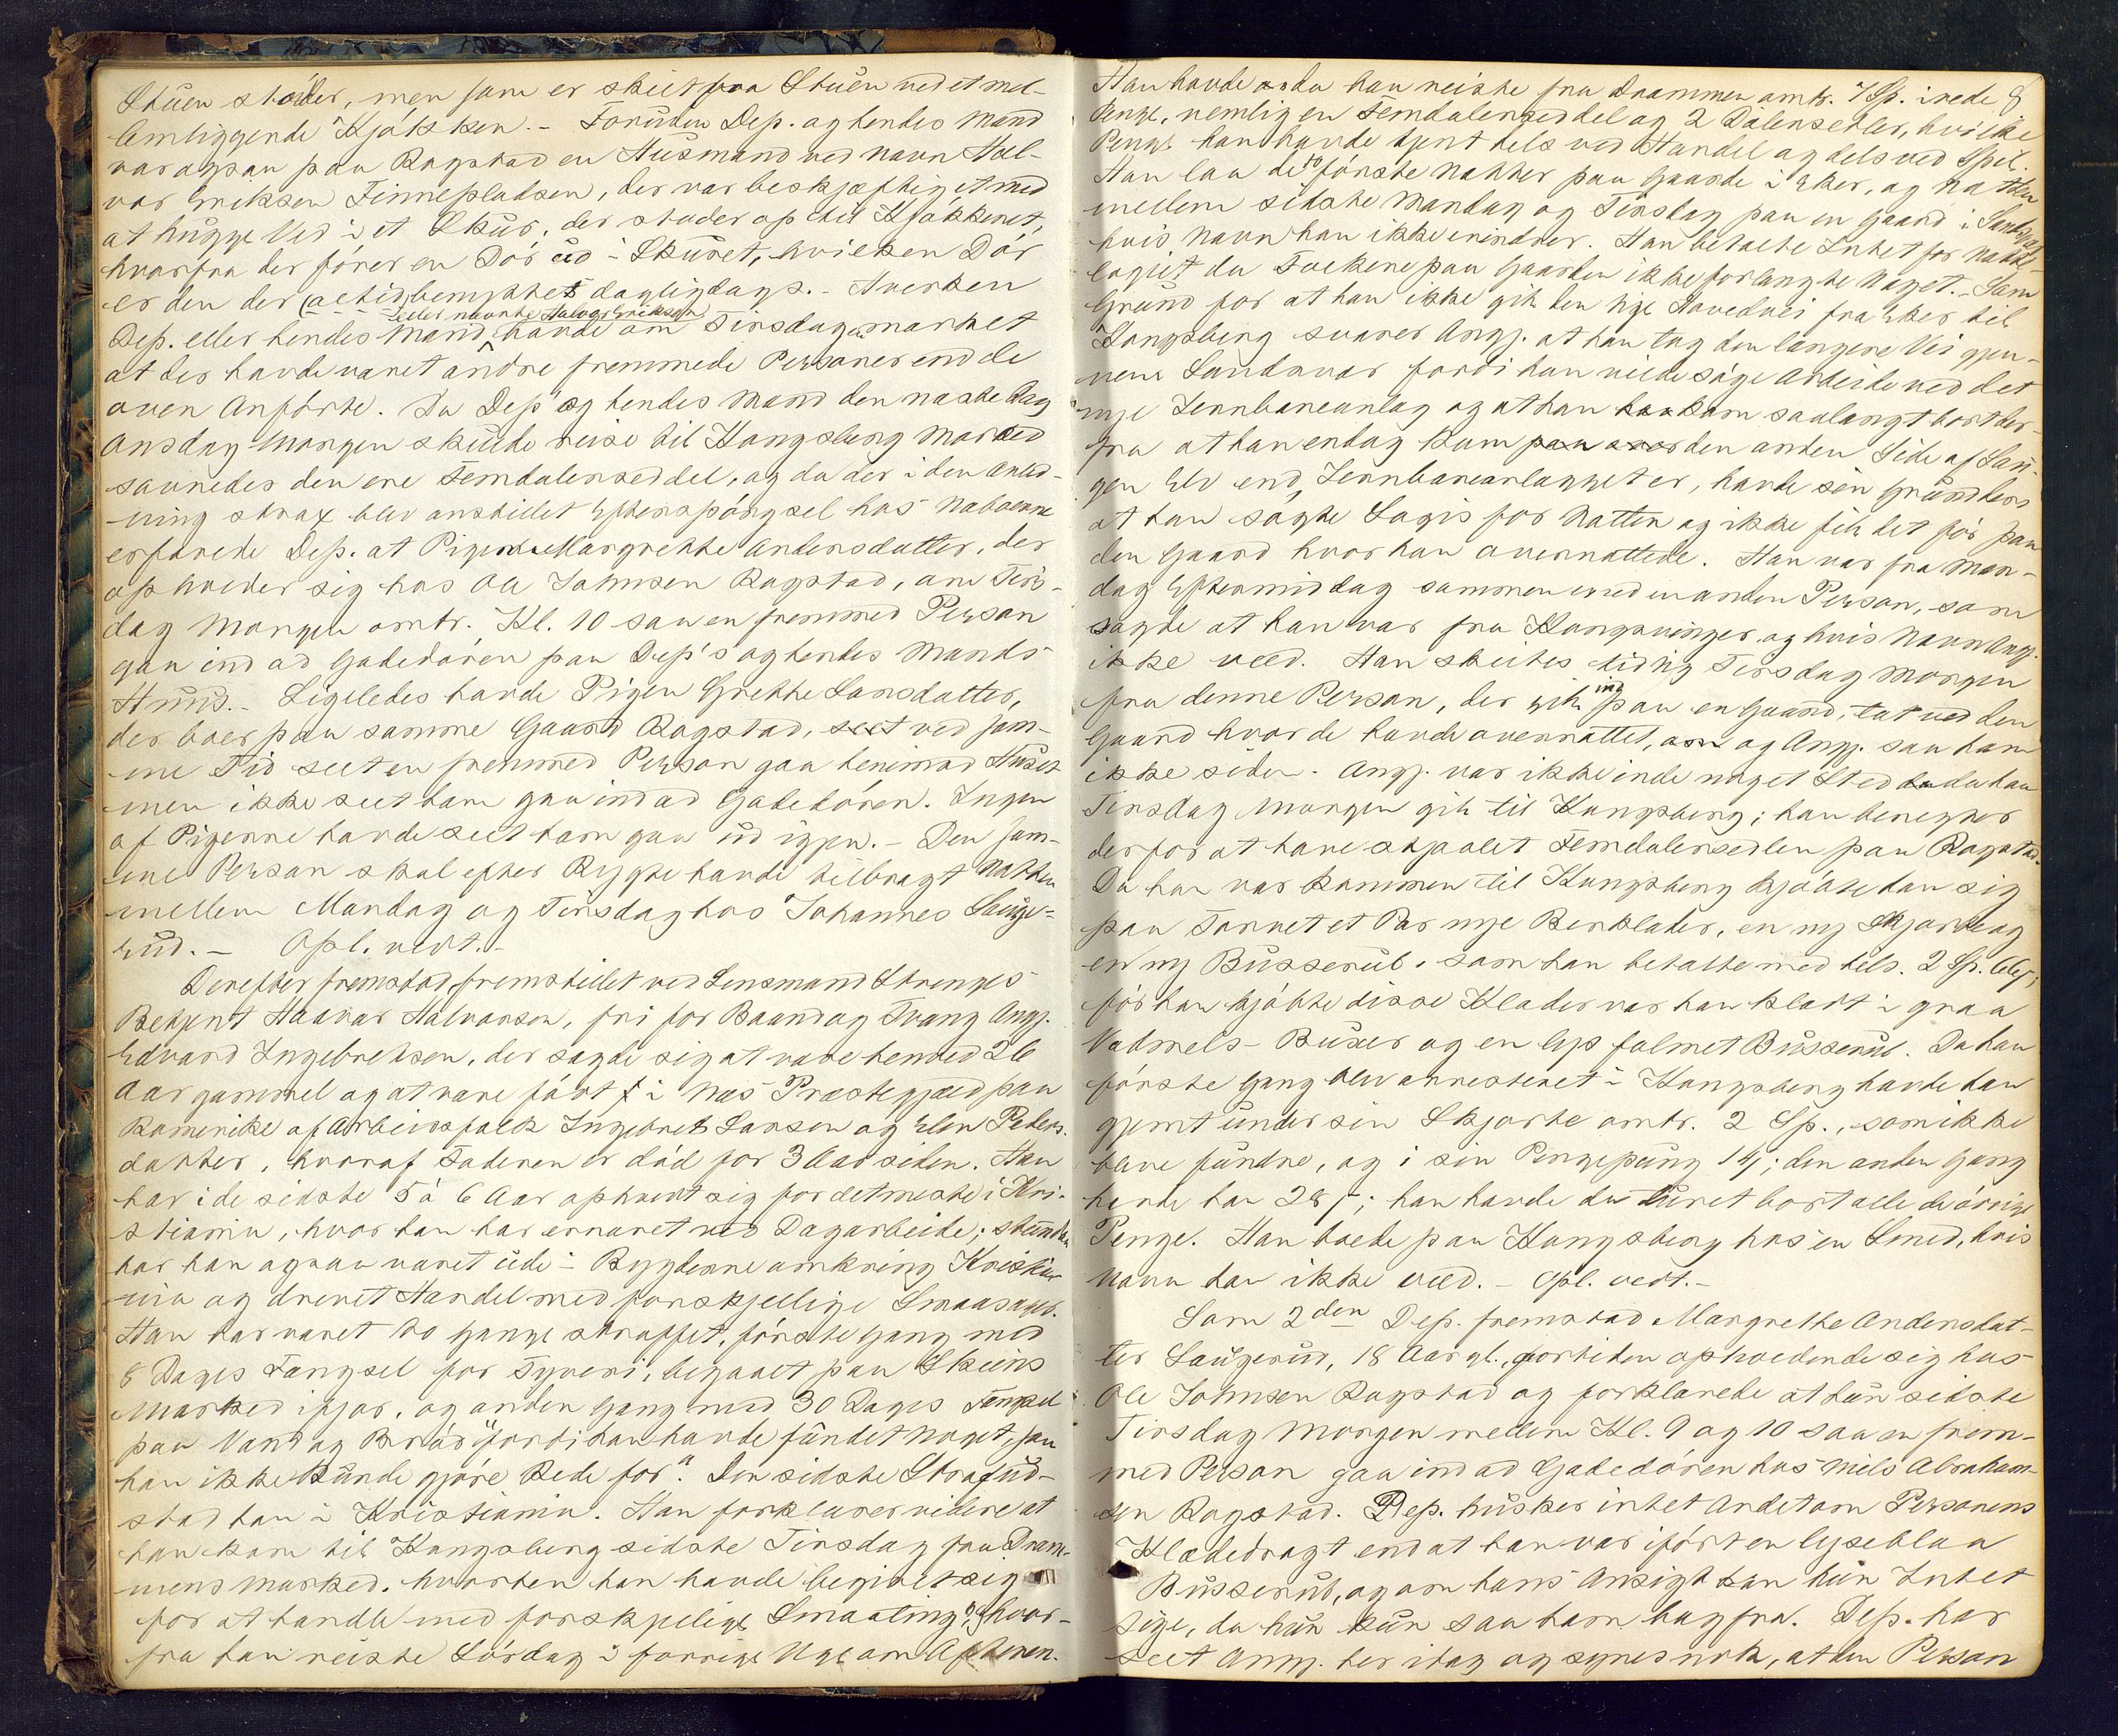 Stuen støder, men som er skilt fra Stuen ved et mel-
lemliggende Kjøkken. - Foruden Dep. og hendes Mand
var ogsaa paa Ragstad en Husmand ved Navn Hal-
vor Eriksen Finnepladsen, der var beskjæftiget med
at hugge Ved i et Skur, der støder op til Kjøkkenet,
hvorfra der fører en Dør ud i Skuret, hvilken Dør
er den der altid benyttes dagligdags. - Hverken
eller nævnte Halvor Eriksen
Dep. eller hendes Mand havde om Tirsdagen mærket
at der havde været andre fremmede Personer end de
oven Anførte. Da Dep. og hendes Mand den næste Dag
Onsdag Morgen skulde reise til Kongsberg Marked
savnedes den ene Femdalerseddel, og da der i den Anled-
ning strax blev anstillet Efterspørgsel hos Naboerne
erfarede Dep. at Pigen Margrethe Andersdatter, der
opholder sig hos Ole Johnsen Ragstad, om Tirs-
dag Morgen omtr. Kl. 10 saa en fremmed Person
gaa ind ad Gadedøren paa Dep's og hendes Mands
Huus. - Ligeledes havde Pigen Grethe Larsdatter,
der boer paa samme Gaard Ragstad, seet ved sam-
me Tid seet en fremmed Person gaa henimod Huset
men ikke seet ham gaa ind ad Gadedøren. Ingen
af Pigerne havde seet ham gaa ud igjen. - Den sam-
me Person skal efter Rygte havde tilbragt Natten
mellem Mandag og Tirsdag hos Johannes Lauge-
rud. - Opl. vedt. -
Derefter fremstod, fremstillet ved Lensmand Strenges
Betjent Haavar Halvorsen, fri for Baand og Tvang Angj.
Edvard Ingebretsen, der sagde sig at være henved 26
Aar gammel og at være født i Næs Præstegjæld paa
Romerike af Arbeidsfolk Ingebret Larsen og Elen Peders-
datter, hvoraf Faderen er død for 3 Aar siden. Han
har i de sidste 5 à 6 Aar opholdt sig for det meste i Kri-
stiania, hvor han har ernæret ved Dagarbeide; stundom
har han ogsaa været ude i Bygderne omkring Kristia-
nia og drevet Handel med forskjellige Smaasager.
Han har været to Gange straffet, første Gang med
8 Dages Fængsel for Tyveri, begaaet paa Skeins
Marked ifjor, og anden Gang med 30 Dages Fængsel
paa Vand og Brød "fordi han havde fundet Noget, som
han ikke kunde gjøre Rede for". Den sidste Straf ud-
stod han i Kristiania. Han forklarer videre at
han kom til Kongsberg sidste Tirsdag fra Dram-
mens Marked, hvorhen han havde begivet sig
for at handle med forskjellige Smaating, og hvor-
fra han reiste Lørdag i forrige Uge om Aftenen.
8
Han havde da han reiste fra Drammen omtr. 7 Sp. i rede
Penge, nemlig en Femdalerseddel og 2 Dalersedler, hvilke
Penge han havde tjent dels ved Handel og dels ved Spil.
Han laa de to første Nætter paa Gaarde i Eker, og Natten
mellem sidste Mandag og Tirsdag paa en Gaard i Sandsvær
hvis Navn han ikke erindrer. Han betalte Intet for Natte-
logiet da Folkene paa Gaarden ikke forlangte Noget. - Som
Grund for at han ikke gik den lige Hovedvei fra Eker til
Kongsberg svarer Angj. at han tog den længere Vei gjen-
nem Sandsvær fordi han vilde søge Arbeide ved det
nye Jernbaneanlæg og at han kom saalangt bort der-
fra at han endog kom paa den anden Side af Lau-
gen Elv end Jernbaneanlægget er, havde sin Grund deri
at han søgte Logis for Natten og ikke fik det før paa
den Gaard hvor han overnattede. Han var fra Man-
dag Eftermiddag sammen med en anden Person, som
sagde at han var fra Kongsvinger og hvis Navn Angj.
ikke veed. Han skiltes tidlig Tirsdag Morgen
fra denne Person, der gik ind paa en Gaard, tæt ved den
Gaard hvor de havde overnattet, og Angj. saa ham
ikke siden. Angj. var ikke inde noget Sted da han
Tirsdag Morgen gik til Kongsberg; han benegter
derfor at have stjaalet Femdalersedlen paa Ragstad.
Da han var kommen til Kongsberg kjøbte han sig
paa Torvet et Par nye Benklæder, en ny Skjorte og
en ny Busserul, som han betalte med tils. 2 Sp.
før han kjøbte disse Klæder var han klædt i graa
Vadmels-Buxer og en lys falmet Busserul. Da han
første Gang blev arresteret i Kongsberg havde han
gjemt under sin Skjorte omtr. 2 Sp., som ikke
bleve fundne, og i sin Pengepung den anden Gang
havde han han havde da turet bort alle de øvrige
Penge. Han boede paa Kongsberg hos en Smed, hvis
Navn han ikke veed. - Opl. vedt. -
Som 2den Dep. fremstod Margrethe Andersdat-
ter Laugerud, 18 Aar gl., fortiden opholdende sig hos
Ole Johnsen Ragstad og forklarede at hun sidste
Tirsdag Morgen mellem Kl. 9 og 10 saa en frem-
med Person gaa ind ad Gadedøren hos Niels Abraham-
sen Ragstad. Dep. husker intet Andet om Personens
Klædedragt end at han var iført en lyseblaa
Busserul, og om hans Ansigt kan hun Intet
sige, da hun kun saa ham bagfra. Dep. har
seet Angj. her idag og synes nok, at den Person